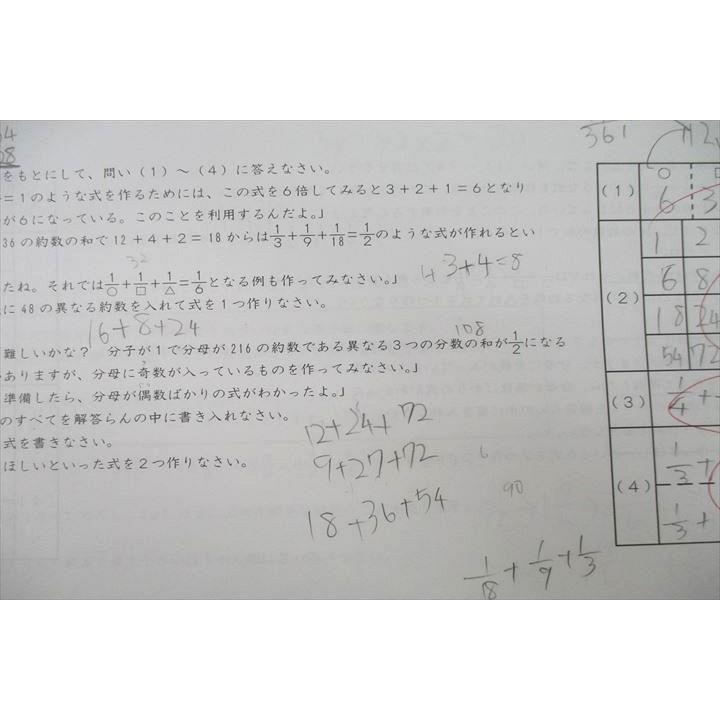 361
をもとにして、問い（1）～（4）に答えなさい。
=1のような式を作るためには、この式を6倍してみると3+2+1=6となり
が6になっている。このことを利用するんだよ。」
36の約数の和で12+4+2=18からは1/3+1/9+1/18=1/2のような式が作れるとい
32
たね。それでは1/○+1/□+1/△=1/6となる例も作ってみなさい。」
3+4=8
に48の異なる約数を入れて式を1つ作りなさい。
16+8+24
108
難しいかな？ 分子が1で分母が216の約数である異なる3つの分数の和が1/2になる
ありますが、分母に奇数が入っているものを作ってみなさい。」
準備したら、分母が偶数ばかりの式がわかったよ。」
のすべてを解答らんの中に書き入れなさい。
式を書きなさい。
ほしいといった式を2つ作りなさい。
12+24+72
9+27+72
18+36+54
90
1/18+1/9+1/3
（1）
○
6 3
（2）
1 2
6 8
18 24
54 72
（3）
1/4+
（4）
1/3+
1/3+